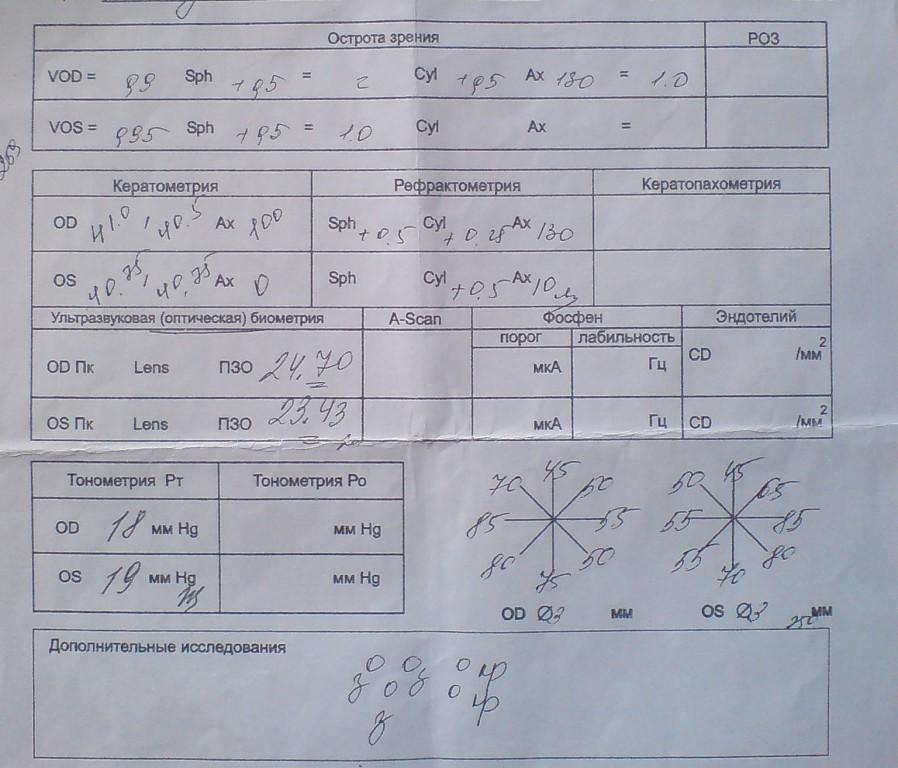 Острота зрения РОЗ
VOD = 0,9 Sph +0,5 = c Cyl +0,5 Ax 180 = 1.0
VOS = 0,95 Sph +0,5 = 1.0 Cyl Ax =
Кератометрия Рефрактометрия Кератопахометрия
OD 41.0, 40.5 Ax 100 Sph +0.5 Cyl +0.25 Ax 130
OS 40.75, 40.75 Ax 0 Sph Cyl +0.5 Ax 10
Ультразвуковая (оптическая) биометрия A-Scan Фосфен Эндотелий
порог лабильность
OD Пк Lens ПЗО 24.70 мкА Гц CD /мм²
OS Пк Lens ПЗО 23.43 мкА Гц CD /мм²
Тонометрия Рт Тонометрия Ро
OD 18 мм Hg мм Hg
OS 19 мм Hg мм Hg
70 45 50
85 55
80 75 50
OD Ø3 мм
50 45 65
55 85
55 70 80
OS Ø3 мм
Дополнительные исследования